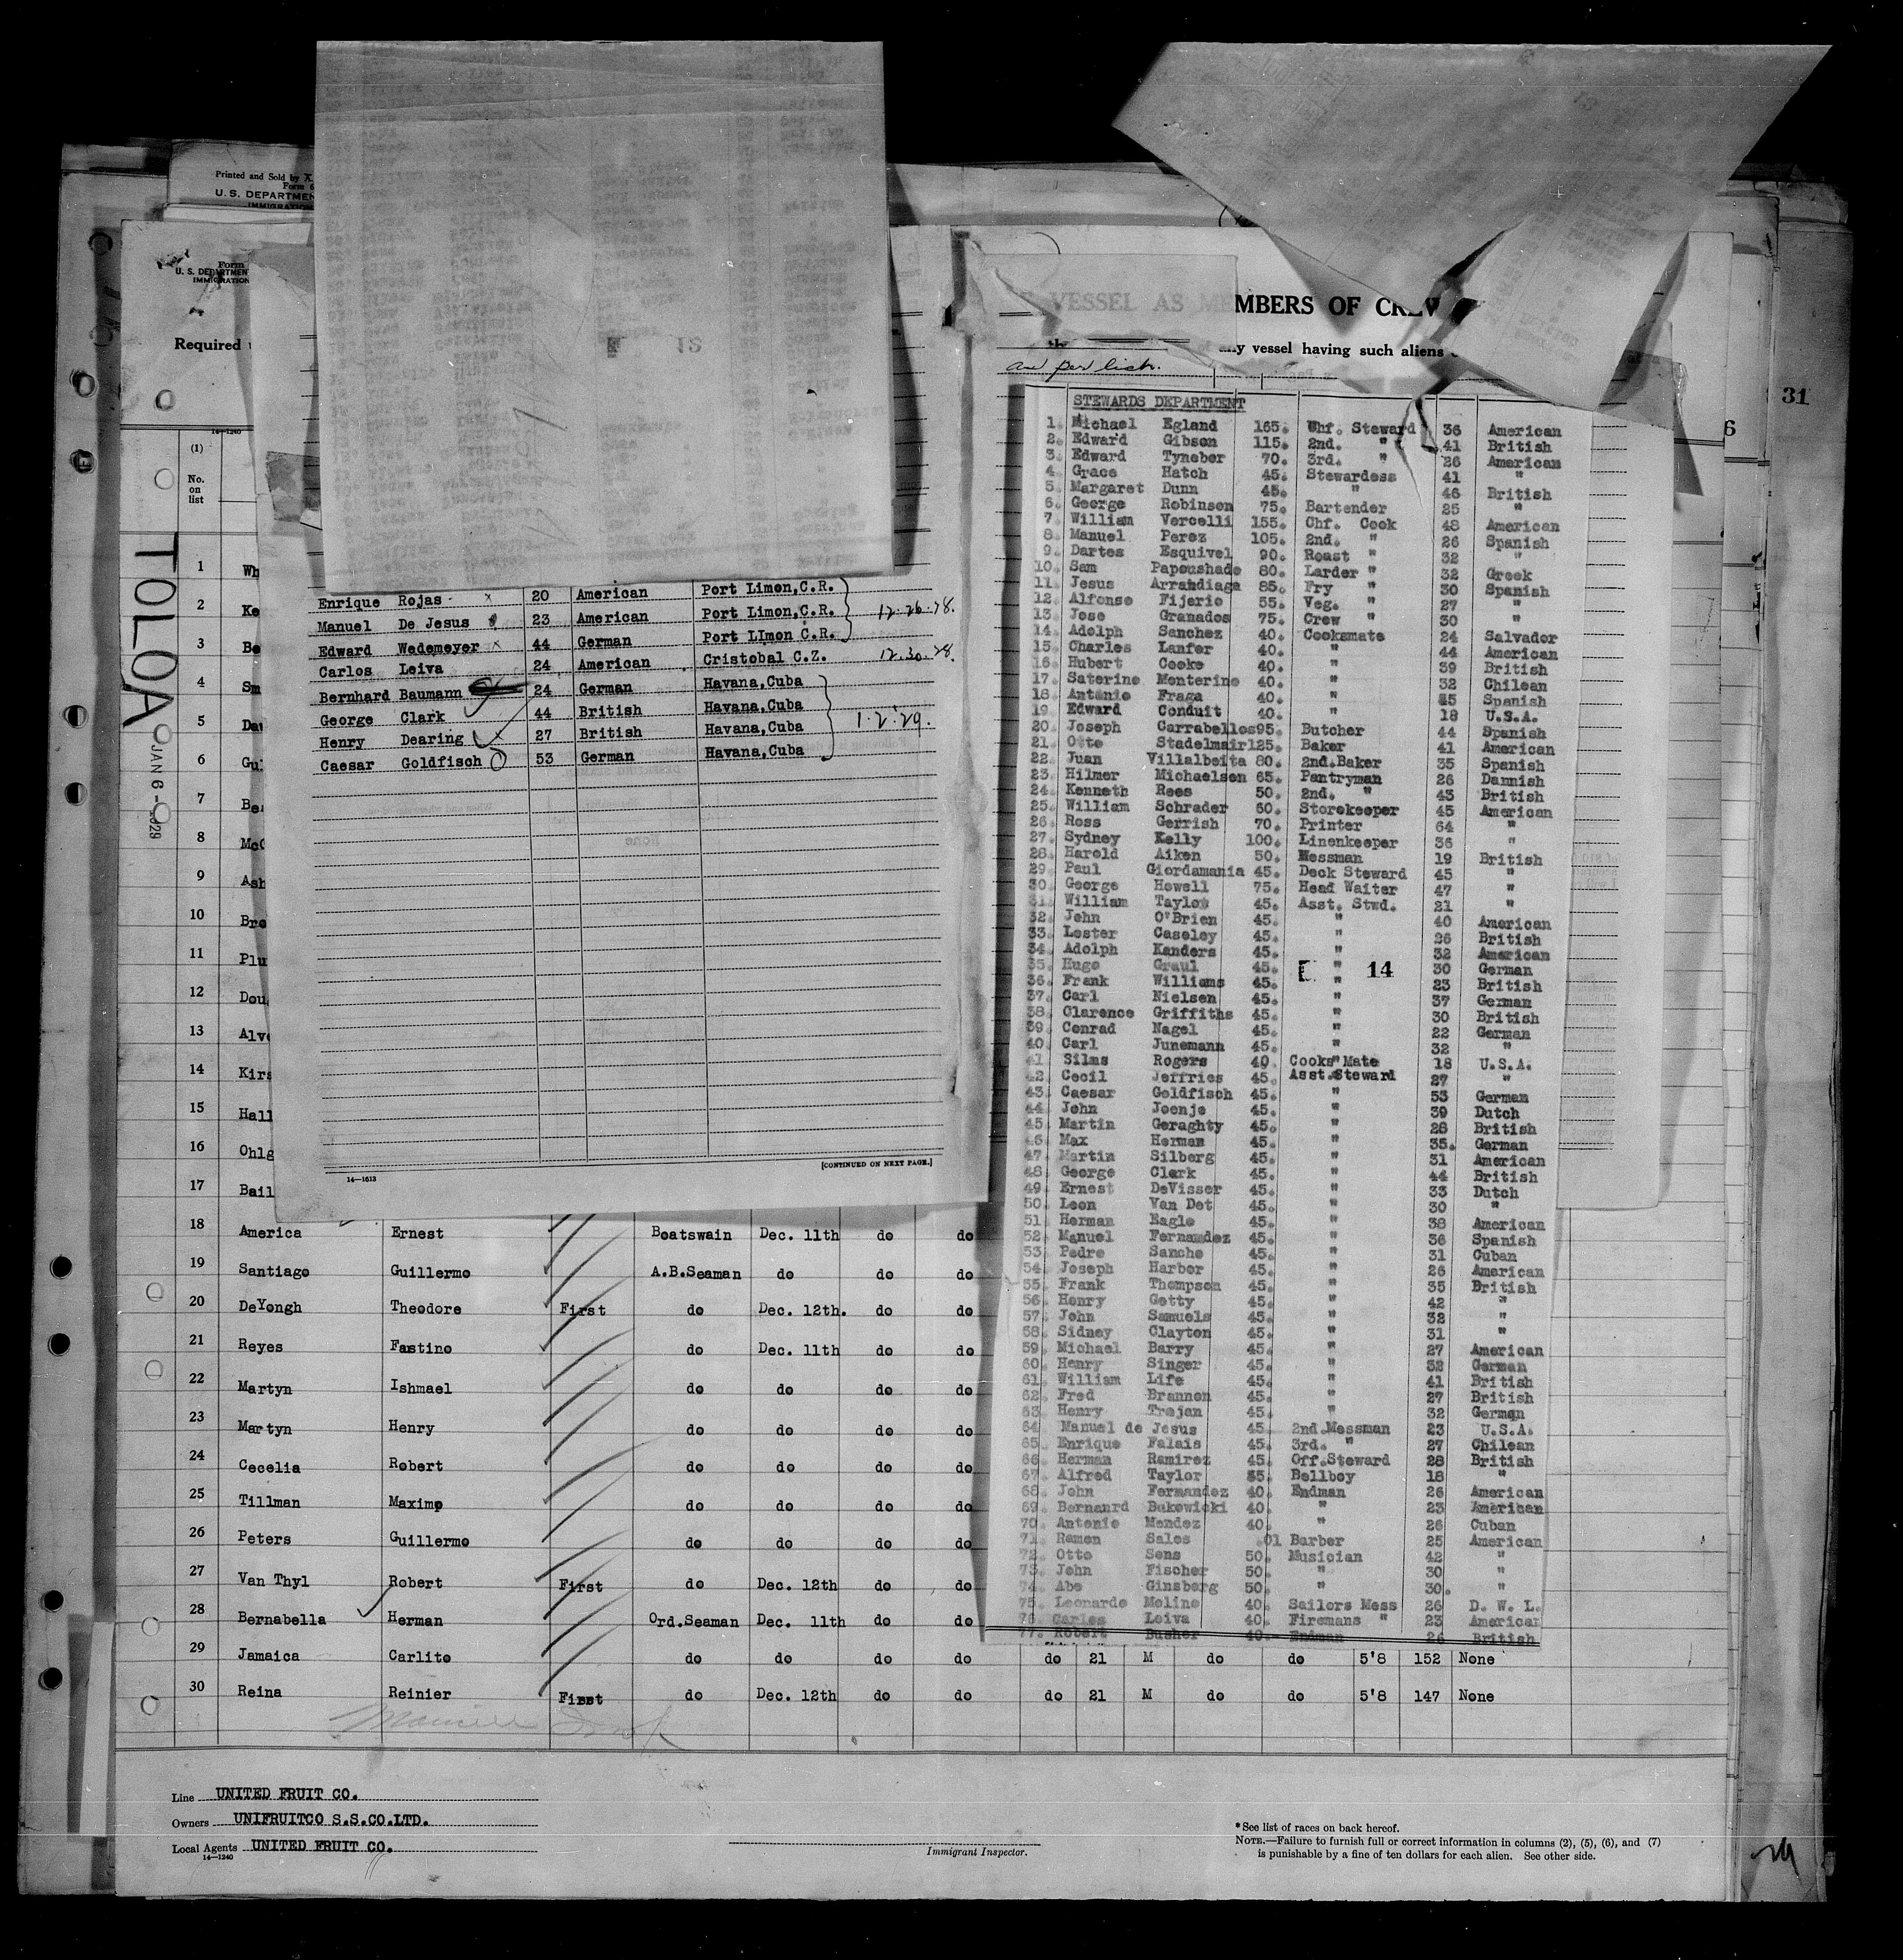 Printed and Sold by
Form
U. S. DEPARTMEN
IMMIGRATION
Form
U. S. DEPARTMENT
IMMIGRATION
Required
14—1240
(1)
No.
on
list
TOLOA
JAN 6 - 1929
31
6
VESSEL AS MEMBERS OF CREW
any vessel having such aliens
as per list.
Enrique Rojas x 20 American Port Limon,C.R.
Manuel De Jesus 23 American Port Limon,C.R. 12-26-28.
Edward Wedemeyer x 44 German Port LImon C.R.
Carlos Leiva 24 American Cristobal C.Z. 12.30.28.
Bernhard Baumann 24 German Havana,Cuba
George Clark 44 British Havana,Cuba 1-2-29.
Henry Dearing x 27 British Havana,Cuba
Caesar Goldfisch 53 German Havana,Cuba
[CONTINUED ON NEXT PAGE.]
14—1613
STEWARDS DEPARTMENT
1. Michael Egland 165. Chf. Steward 36 American
2. Edward Gibson 115. 2nd. " 41 British
3. Edward Tynebor 70. 3rd. " 26 American
4. Grace Hatch 45. Stewardess 41 "
5. Margaret Dunn 45. " 46 British
6. George Robinson 75. Bartender 25 "
7. William Vercelli 155. Chf. Cook 48 American
8. Manuel Perez 105. 2nd. " 26 Spanish
9. Dartes Esquivel 90. Roast " 32 "
10. Sam Papoushado 80. Larder " 32 Greek
11. Jesus Arrandiaga 85. Fry " 30 Spanish
12. Alfonso Fijerio 55. Veg. " 27 "
13. Jose Granados 75. Crew " 30 "
14. Adolph Sanchez 40. Cooksmate 24 Salvador
15. Charles Lanfer 40. " 44 American
16. Hubert Cooke 40. " 39 British
17. Saterino Monterino 40. " 32 Chilean
18. Antonio Fraga 40. " 35 Spanish
19. Edward Conduit 40. " 18 U.S.A.
20. Joseph Carrabellos 95. Butcher 44 Spanish
21. Otto Stadelmair 125. Baker 41 American
22. Juan Villalbeita 80. 2nd.Baker 35 Spanish
23. Hilmer Michaelsen 65. Pantryman 26 Dannish
24. Kenneth Rees 50. 2nd. " 43 British
25. William Schrader 60. Storekeeper 45 American
26. Ross Gerrish 70. Printer 64 "
27. Sydney Kelly 100. Linenkeeper 36 "
28. Harold Aiken 50. Messman 19 British
29. Paul Giordamania 45. Deck Steward 45 "
30. George Howell 75. Head Waiter 47 "
31. William Taylor 45. Asst. Stwd. 21 "
32. John O'Brien 45. " 40 American
33. Lester Caseley 45. " 26 British
34. Adolph Kanders 45. " 32 American
35. Hugo Graul 45. " 14 30 German
36. Frank Williams 45. " 23 British
37. Carl Nielsen 45. " 37 German
38. Clarence Griffiths 45. " 30 British
39. Conrad Nagel 45. " 22 German
40. Carl Junemann 45. " 32 "
41 Silas Rogers 40. Cooks Mate 18 U.S.A.
42. Cecil Jeffries 45. Asst.Steward 27 "
43. Caesar Goldfisch 45. " 53 German
44. John Joenje 45. " 39 Dutch
45. Martin Geraghty 45. " 28 British
46. Max Herman 45. " 35. German
47. Martin Silberg 45. " 31 American
48. George Clark 45. " 44 British
49. Ernest DeVisser 45. " 33 Dutch
50. Leon Van Det 45. " 30 "
51. Herman Eagle 45. " 38 American
52. Manuel Fernandez 45. " 36 Spanish
53. Pedro Sancho 45. " 31 Cuban
54. Joseph Harbor 45. " 26 American
55. Frank Thompson 45. " 35 British
56. Henry Getty 45. " 42 "
57. John Samuels 45. " 32 "
58. Sidney Clayton 45. " 31 "
59. Michael Barry 45. " 27 American
60. Henry Singer 45. " 32 German
61. William Life 45. " 41 British
62. Fred Brannon 45. " 27 British
63. Henry Trojan 45. " 32 German
64. Manuel de Jesus 45. 2nd.Messman 23 U.S.A.
65. Enrique Falais 45. 3rd. " 27 Chilean
66. Herman Ramirez 45. Off.Steward 28 British
67. Alfred Taylor 35. Bellboy 18 "
68. John Fernandez 40. Endman 26 American
69. Bernanrd Bukowicki 40. " 23 American
70. Antonio Mendez 40. " 26 Cuban
71. Ramon Sales .01 Barber 25 American
72. Otto Sens 50. Musician 42 "
73. John Fischer 50. " 30 "
74. Abe Ginsberg 50. " 30. "
75. Leonardo Moline 40. Sailors Mess 26 D. W. I.
76. Carlos Leiva 40. Firemans " 23 American
77. Robert Busher 40. Endman 26 British
1 Wh
2 Ke
3 Be
4 Sm
5 Da
6 Gu
7 Be
8 McC
9 Ash
10 Bro
11 Plu
12 Dou
13 Alve
14 Kirs
15 Hall
16 Ohlg
17 Bail
18 America Ernest Boatswain Dec. 11th do do
19 Santiago Guillermo A.B.Seaman do do do
20 DeYongh Theodore First do Dec. 12th. do do
21 Reyes Fastino do Dec. 11th do do
22 Martyn Ishmael do do do do
23 Martyn Henry do do do do
24 Cecelia Robert do do do do
25 Tillman Maximo do do do do
26 Peters Guillermo do do do do
27 Van Thyl Robert First do Dec. 12th do do
28 Bernabella Herman Ord.Seaman Dec. 11th do do
29 Jamaica Carlito do do do do do 21 M do do 5'8 152 None
30 Reina Reinier First do Dec. 12th do do do 21 M do do 5'8 147 None
Line UNITED FRUIT CO.
Owners UNIFRUITCO S.S.CO.LTD.
Local Agents UNITED FRUIT CO.
14—1240
Immigrant Inspector.
*See list of races on back hereof.
NOTE.—Failure to furnish full or correct information in columns (2), (5), (6), and (7)
is punishable by a fine of ten dollars for each alien. See other side.